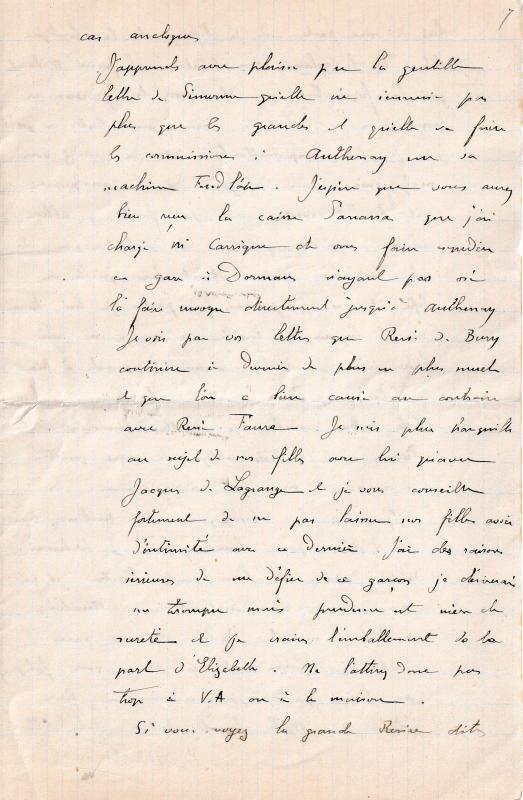 7
cas analogues
J'apprends avec plaisir par la gentille
lettre de Simonne qu'elle ne s'ennuie pas
plus que les grandes et qu'elle va faire
les commissions à Authenay avec sa
machine. J'espère que vous aurez
bien reçu la caisse Panassa que j'ai
chargé Mr Carrique de vous faire expédier
en gare à Dormans n'ayant pas osé
la faire envoyer directement jusqu'à Authenay
Je vois par vos lettres que René de Bury
continue à devenir de plus en plus muet
et que l'on a bien causé au contraire
avec René Faure. Je suis plus tranquille
au sujet de nos filles avec lui qu'avec
Jacques de Lagrange et je vous conseille
fortement de ne pas laisser nos filles avoir
d'intimité avec ce dernier. J'ai des raisons
sérieuses de me défier de ce garçon, je désirerais
me tromper mais prudence est mère de
sureté et je crains l'emballement de la
part d'Elizabeth. Ne l'attirez donc pas
trop à V.A ou à la maison.
Si vous voyez la grande dites